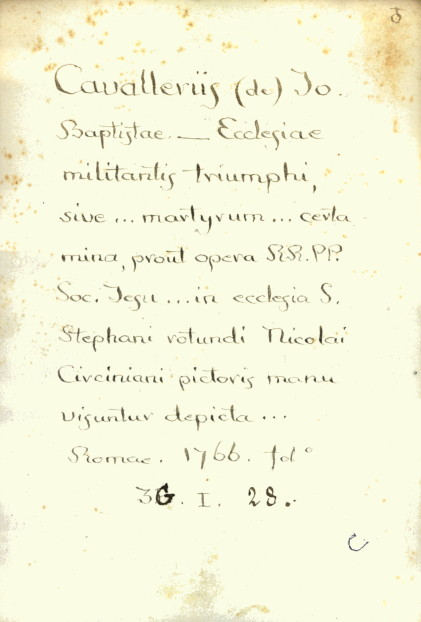 Cavalleriis (de) Jo.
Baptistae — Ecclesiae
militantis triumphi,
sive ... martyrum ... certa
mina, prout opera RR.PP.
Soc. Jesu ... in ecclesia S.
Stephani rotundi Nicolai
Circiniani pictoris manu
visuntur depicta ...
Romae. 1766. fol°
36. I. 28.
C